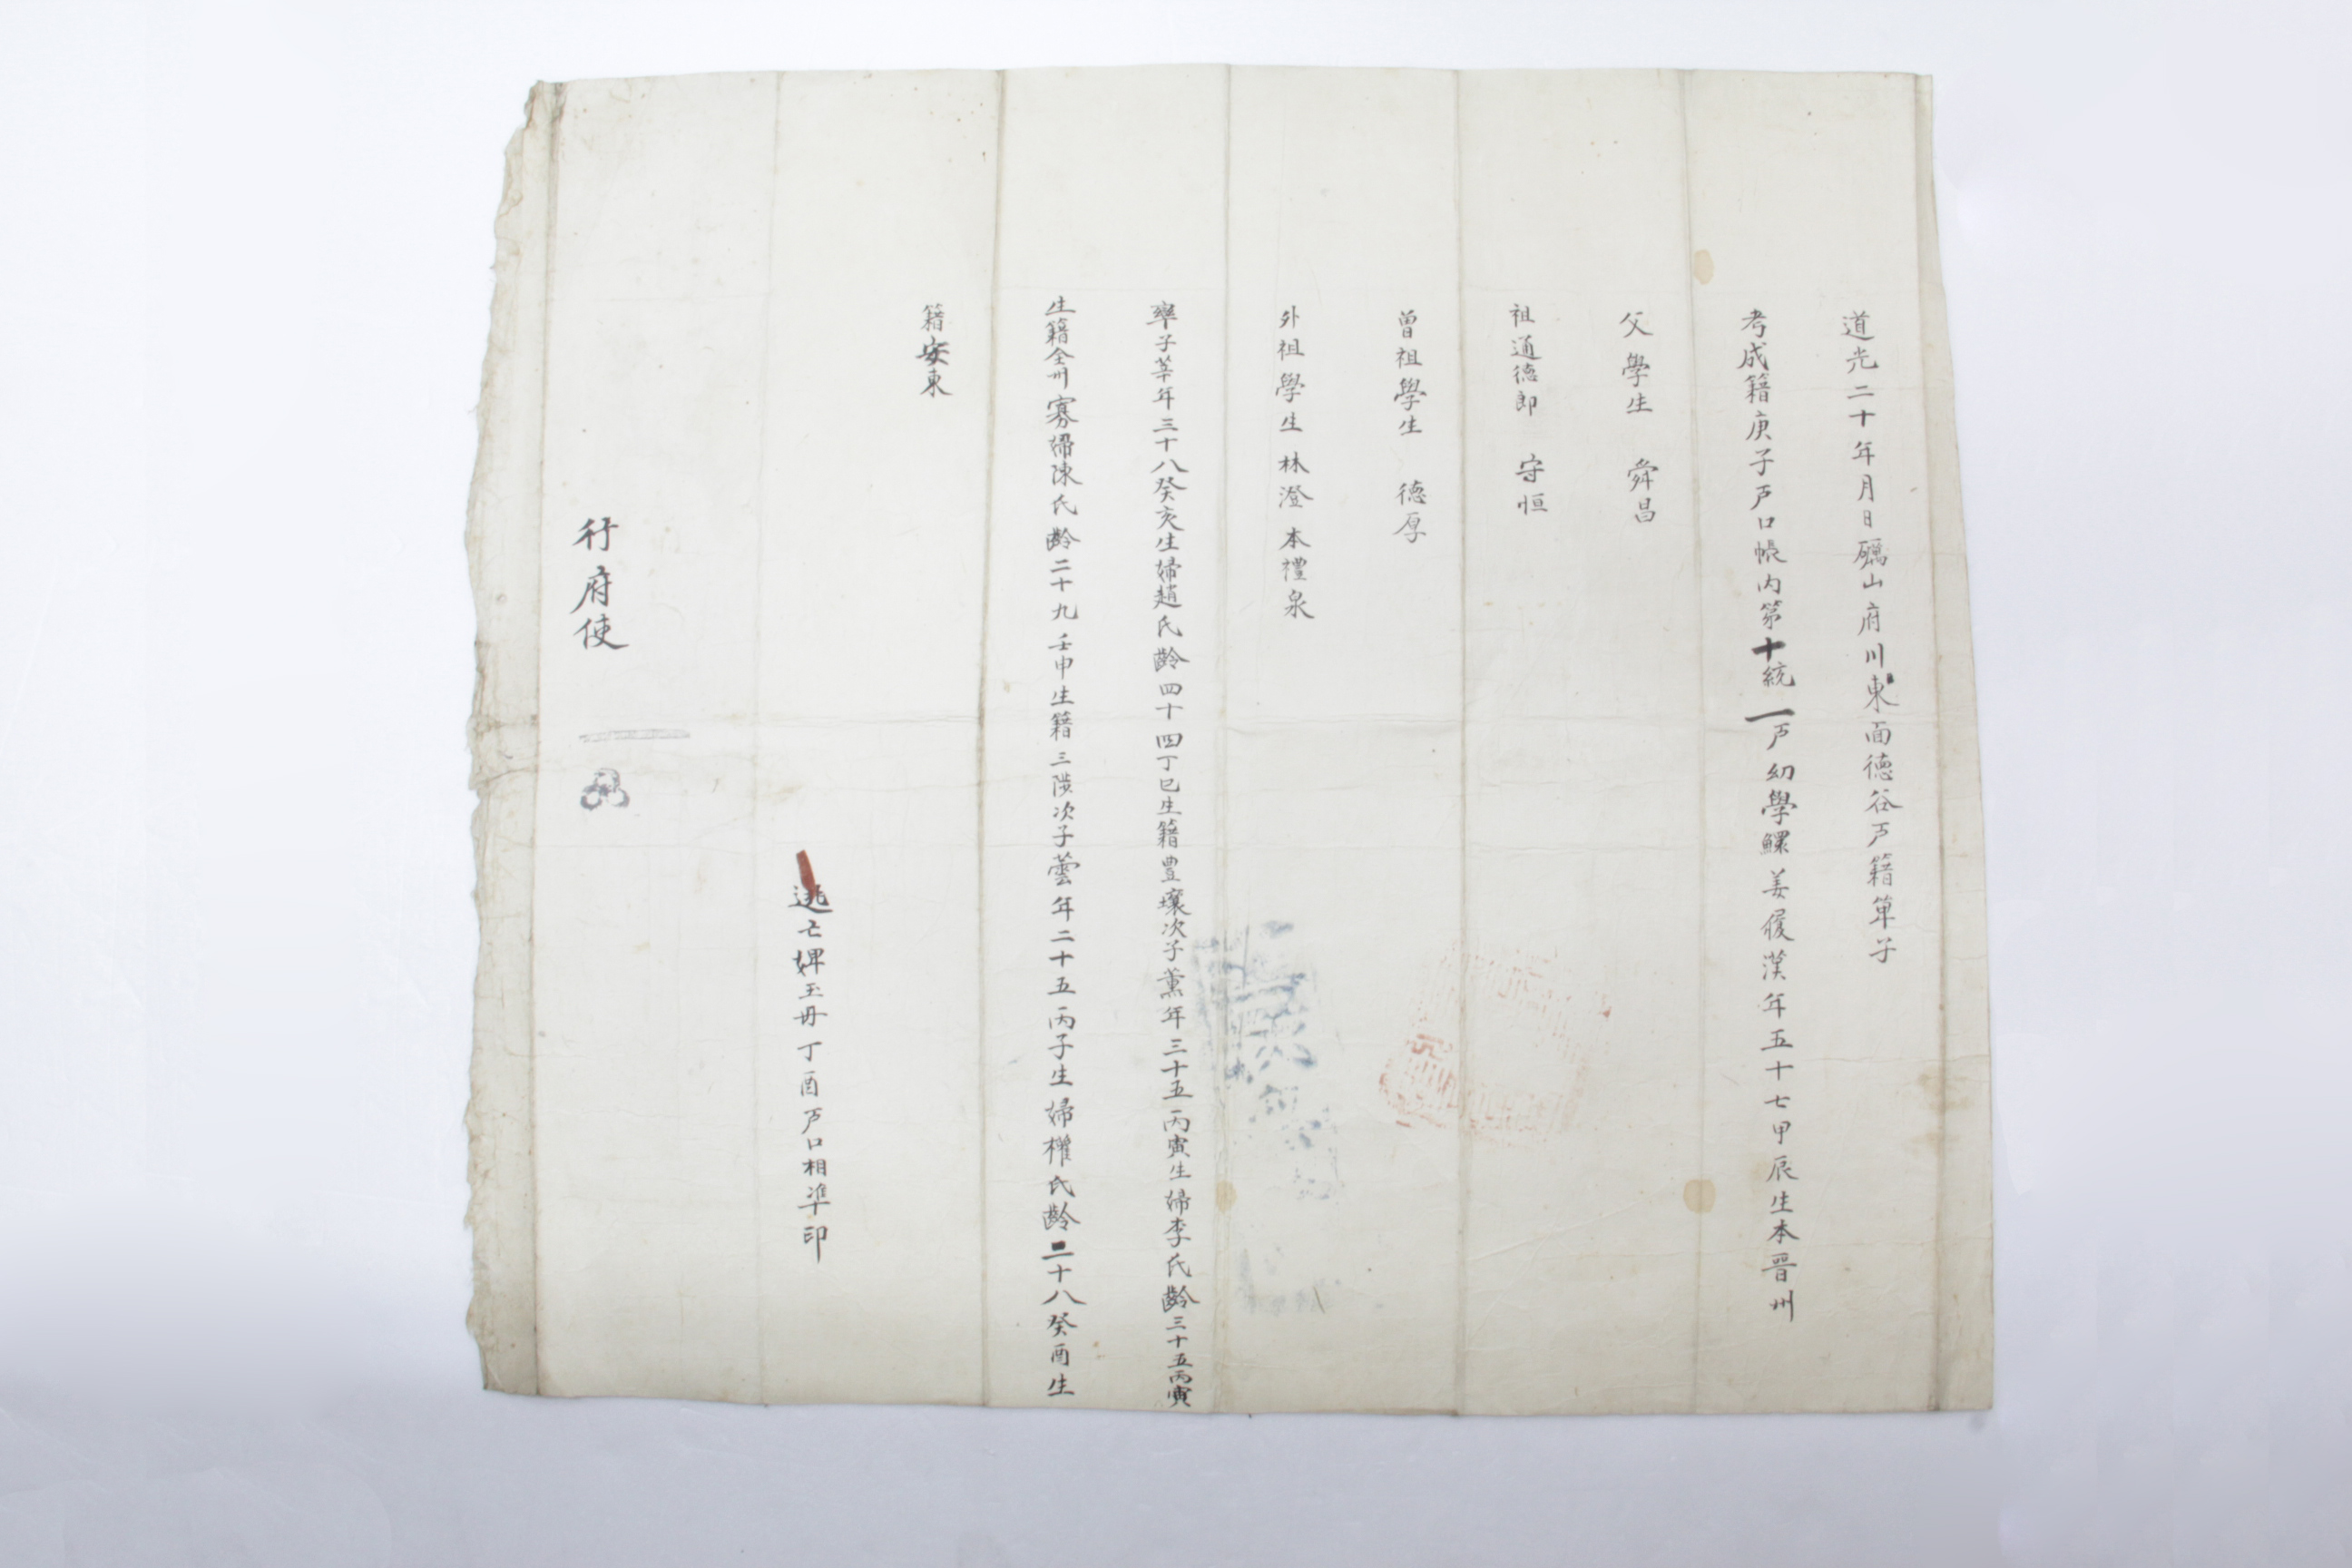 道光二十年月日礪山府川東面德谷戶籍單子
考成籍庚子戶口帳內第十統一戶幼學鰥姜履漢年五十七甲辰生本晋州
父學生 舜昌
祖通德郎 守恒
曾祖學生 德厚
外祖學生林澄本禮泉
率子莘年三十八癸亥生婦趙氏齡四十四丁巳生籍豊壤次子薰年三十五丙寅生婦李氏齡三十五丙寅
生籍全州寡婦陳氏齡二十九壬申生籍三陟次子蕓年二十五丙子生婦權氏齡二十八癸酉生
籍安東
逃亡婢玉丹丁酉戶口相準印
行府使